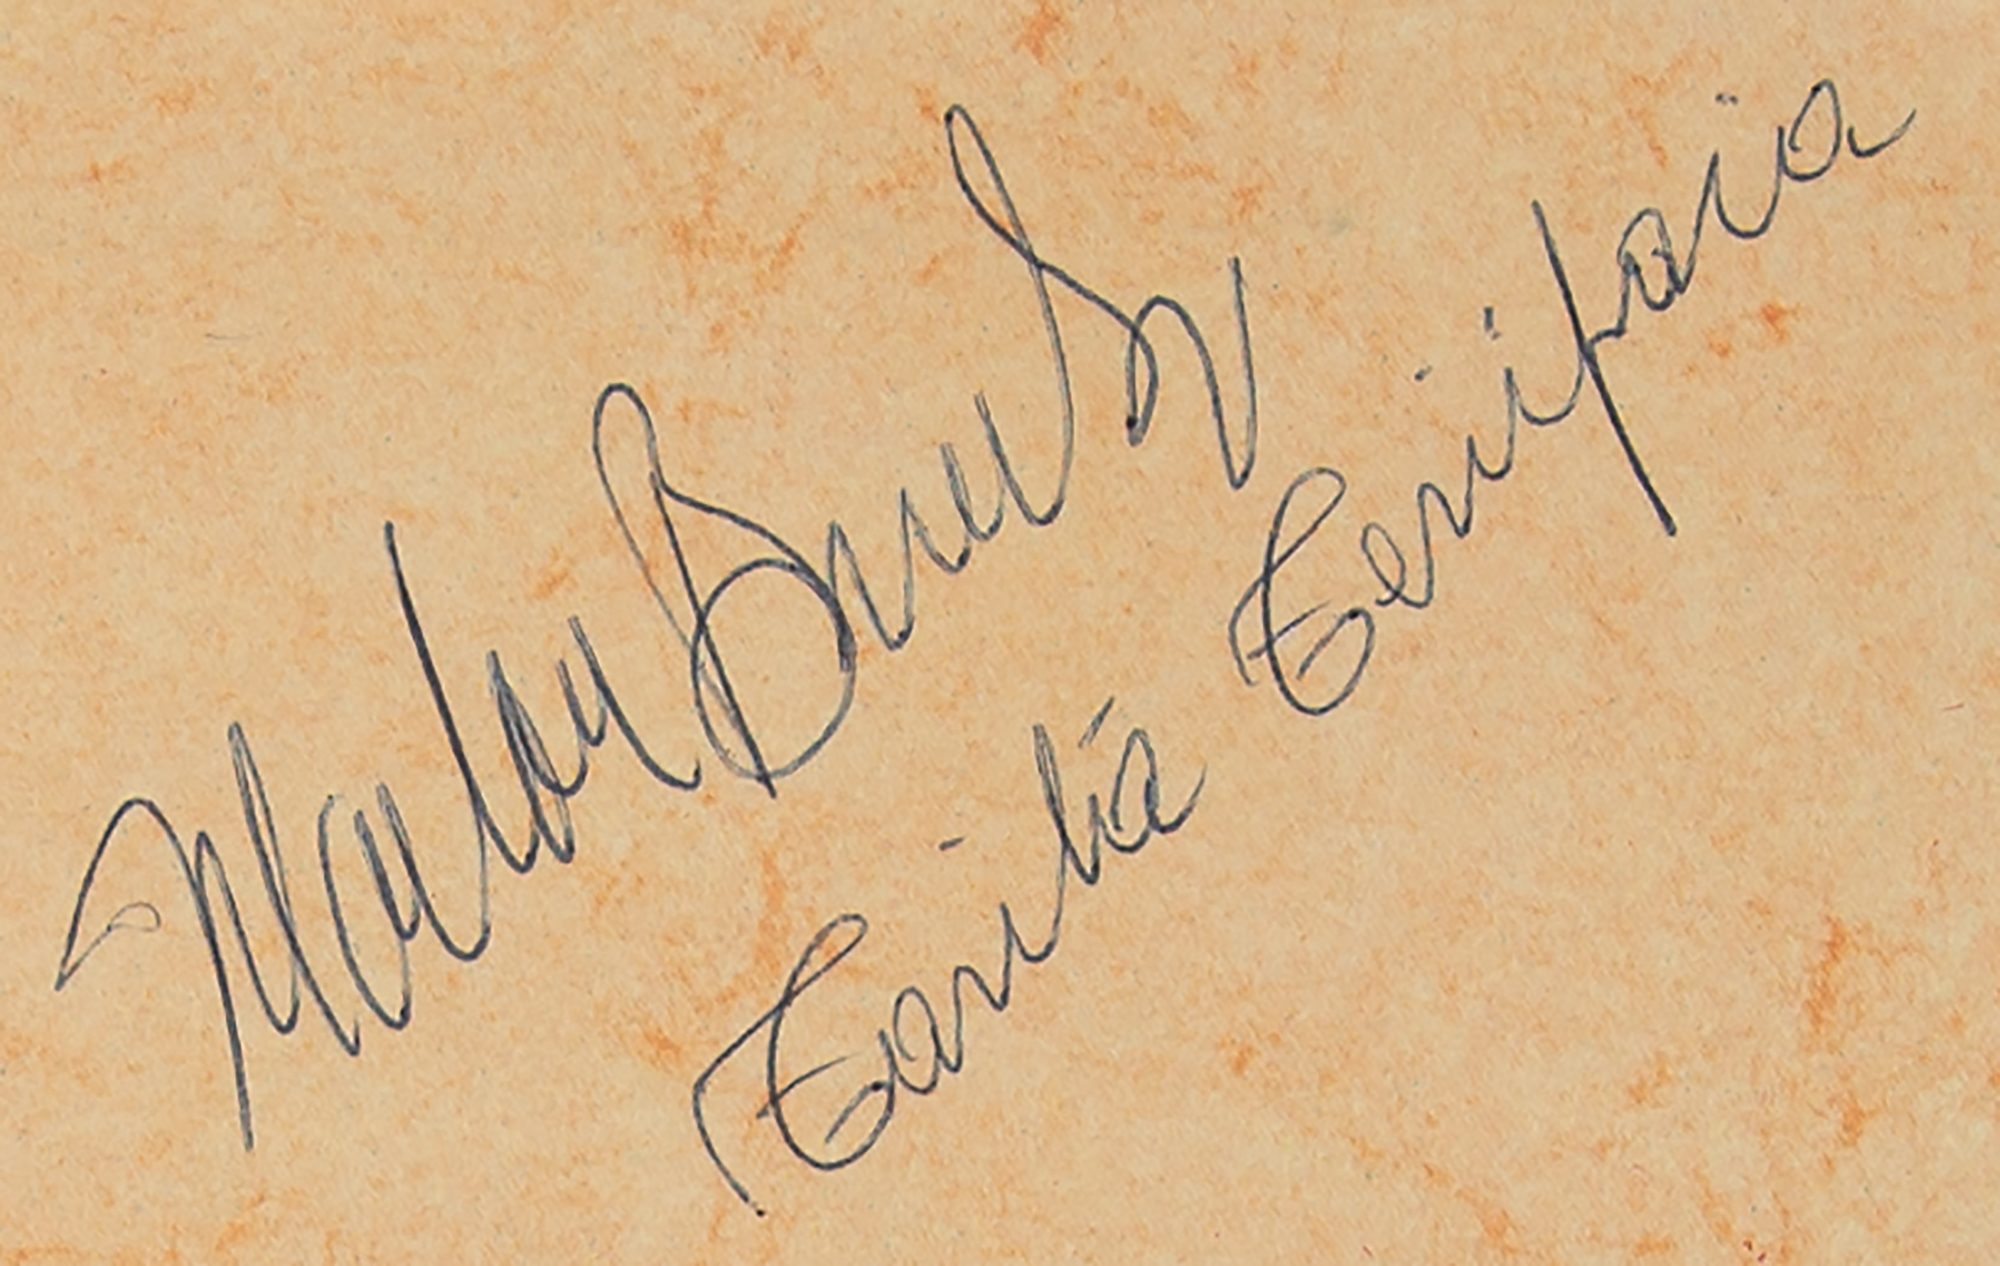 Marlon Brando
Tarita Teriipaia